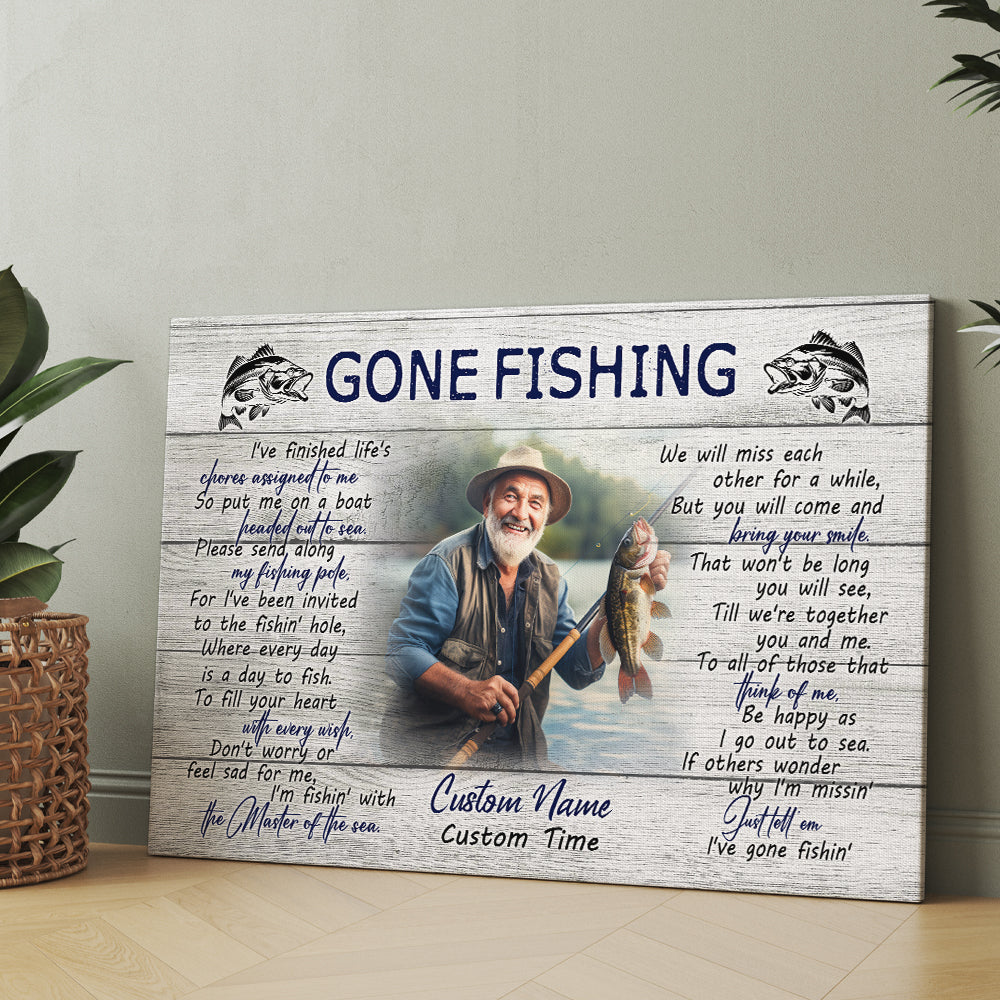 GONE FISHING
I've finished life's
chores assigned to me
So put me on a boat
headed out to sea.
Please send, along
my fishing pole,
For I've been invited
to the fishin' hole,
Where every day
is a day to fish.
To fill your heart
with every wish,
Don't worry or
feel sad for me,
I'm fishin' with
the Master of the sea.
We will miss each
other for a while,
But you will come and
bring your smile.
That won't be long
you will see,
Till we're together
you and me.
To all of those that
think of me,
Be happy as
I go out to sea.
If others wonder
why I'm missin'
Just tell em
I've gone fishin'
Custom Name
Custom Time